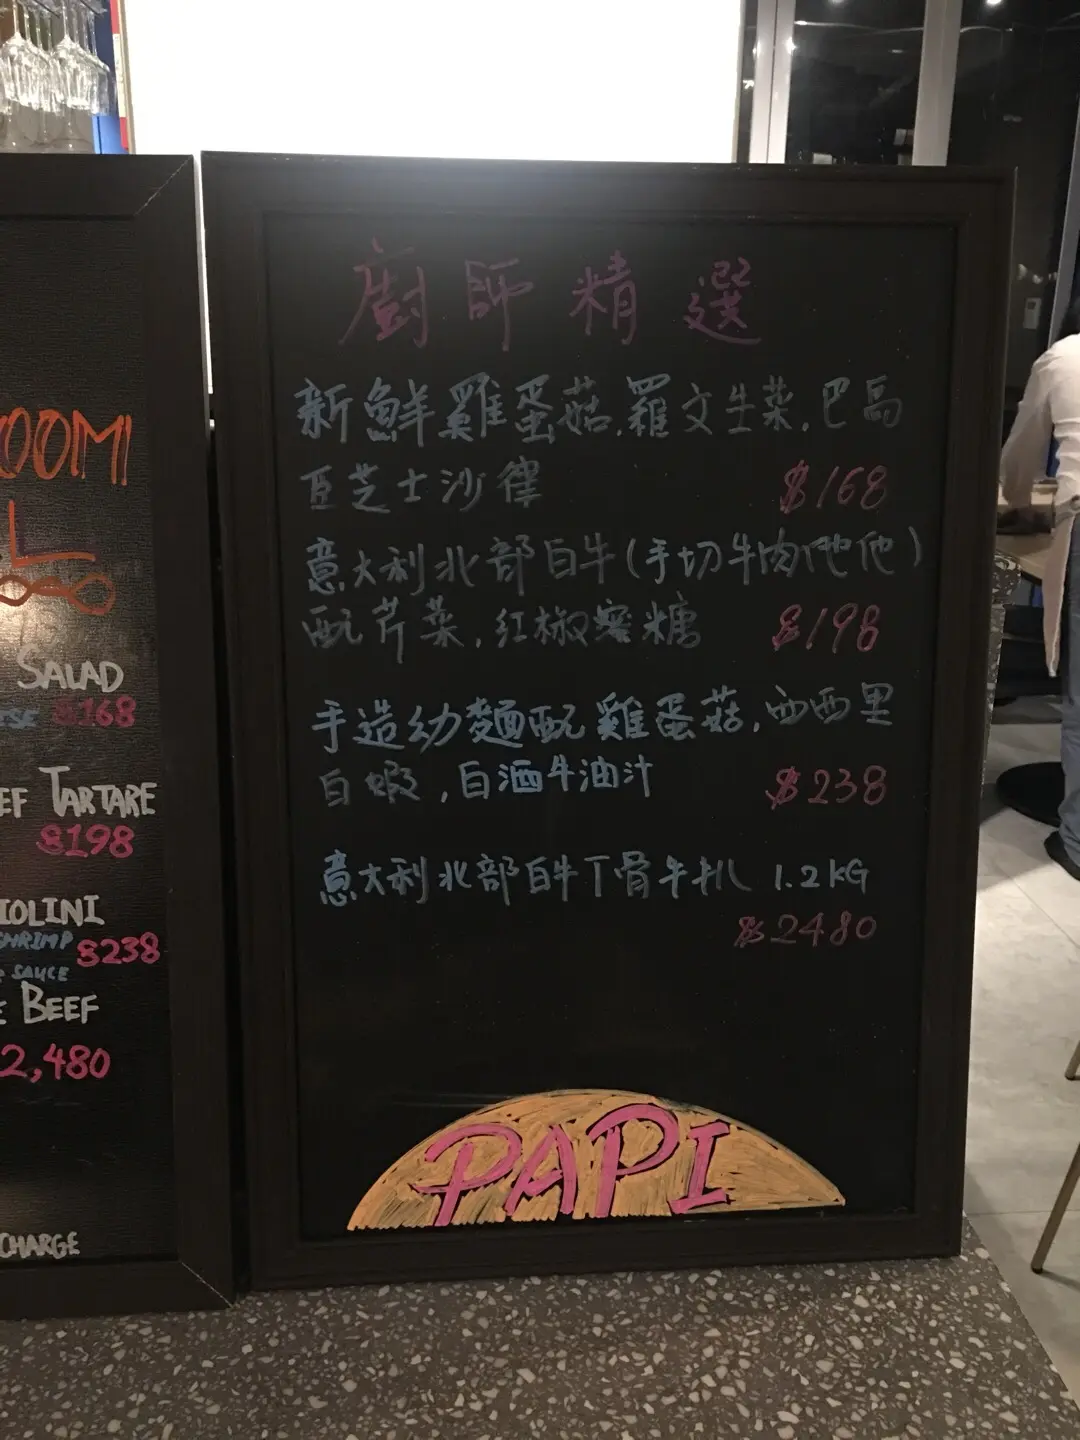 OOMI
SALAD
$168
EF TARTARE
$198
IOLINI
SHRIMP
$238
SAUCE
E BEEF
2,480
CHARGE
廚師精選
新鮮雞蛋菇,羅文生菜,巴馬
臣芝士沙律
$168
意大利北部白牛(手切牛肉他他)
配芹菜,紅椒蜜糖
$198
手造幼麵配雞蛋菇,西西里
白蝦,白酒牛油汁
$238
意大利北部白牛丁骨牛扒 1.2KG
$2480
PAPI